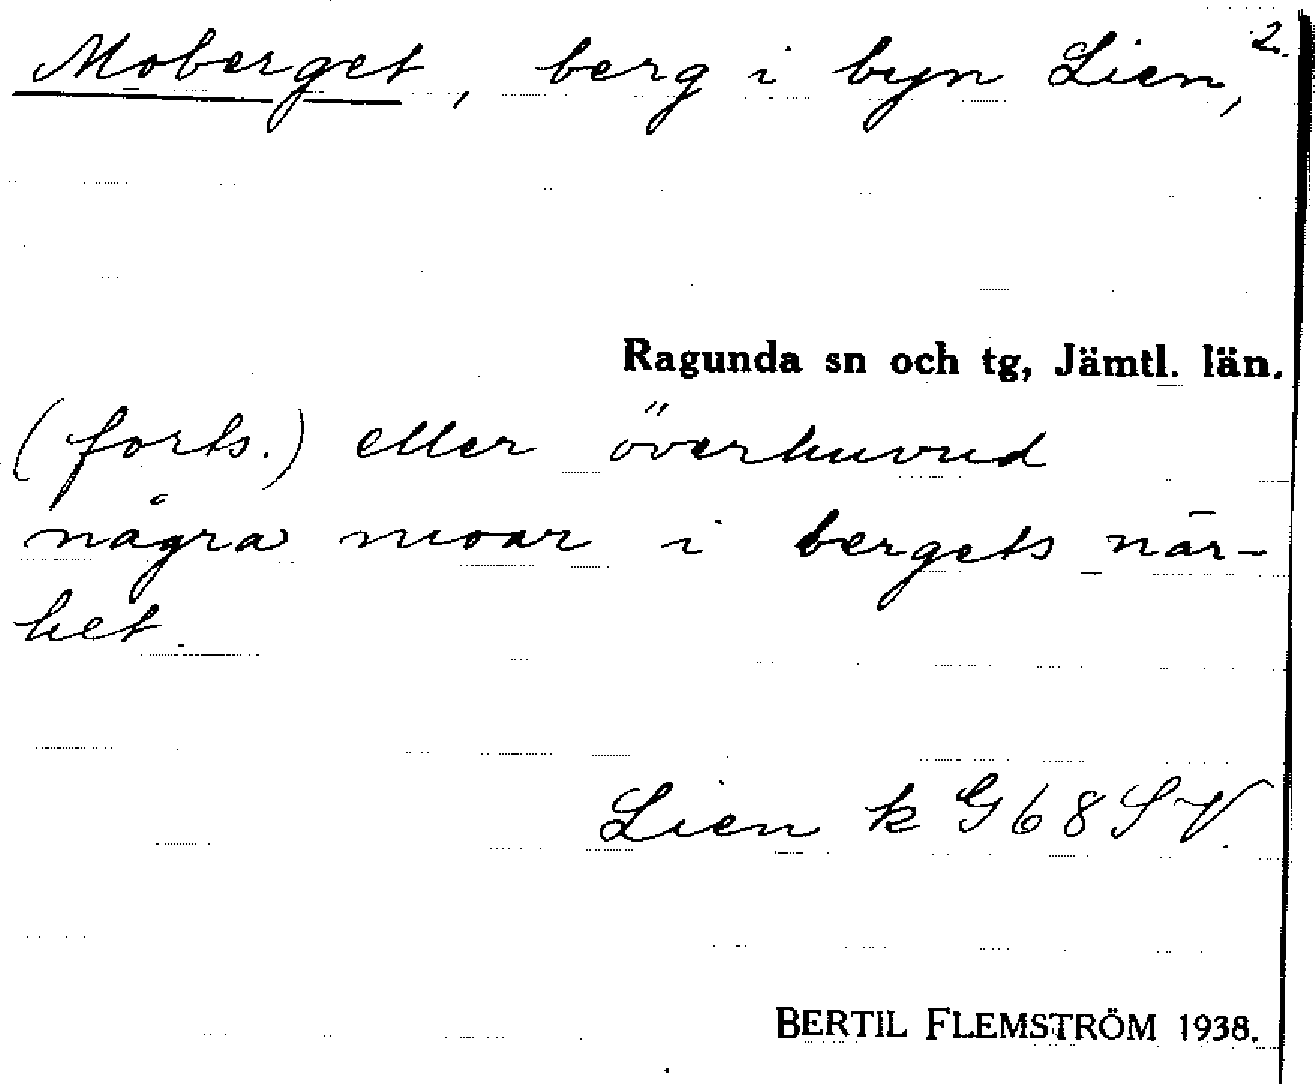 Moberget, berg i byn Lien, 2.
Ragunda sn och tg, Jämtl. län.
(forts.) eller överhuvud
några moar i bergets när-
het.
Lien k G 68 S V.
BERTIL FLEMSTRÖM 1938.